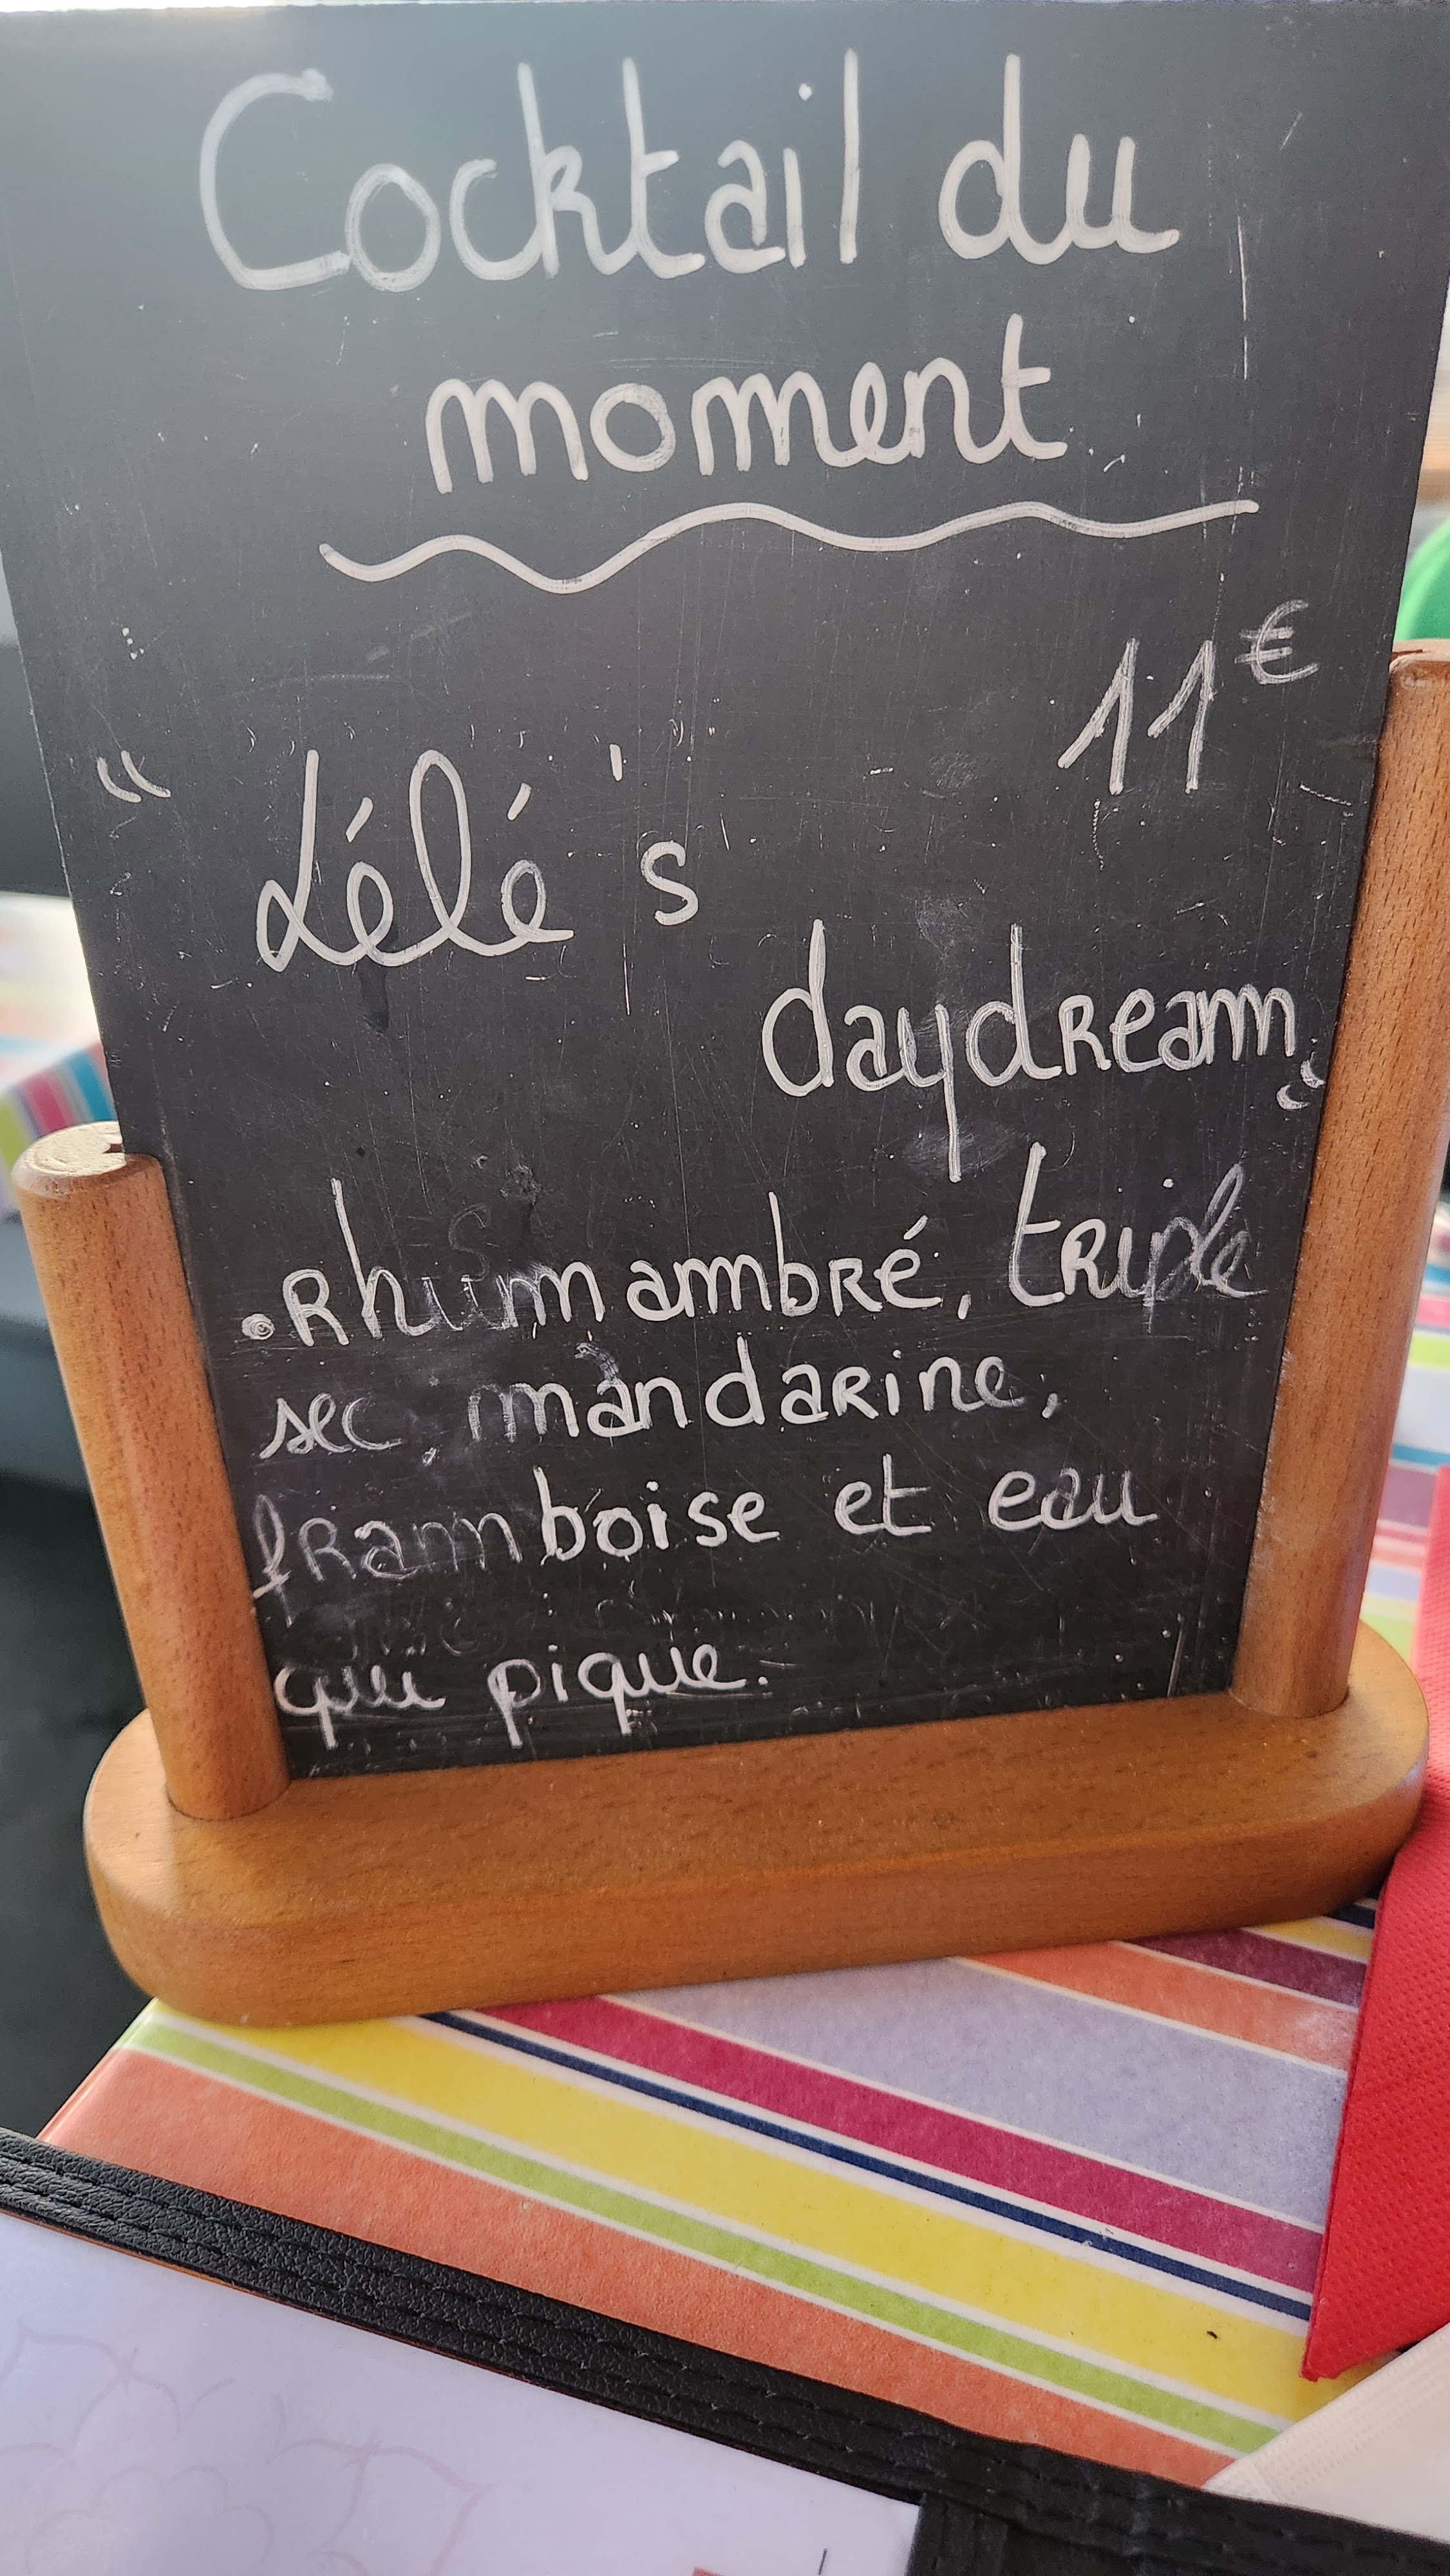 Cocktail du
moment
11€
"Lélé's
daydream"
• Rhum ambré, triple
sec, mandarine,
framboise et eau
qui pique.